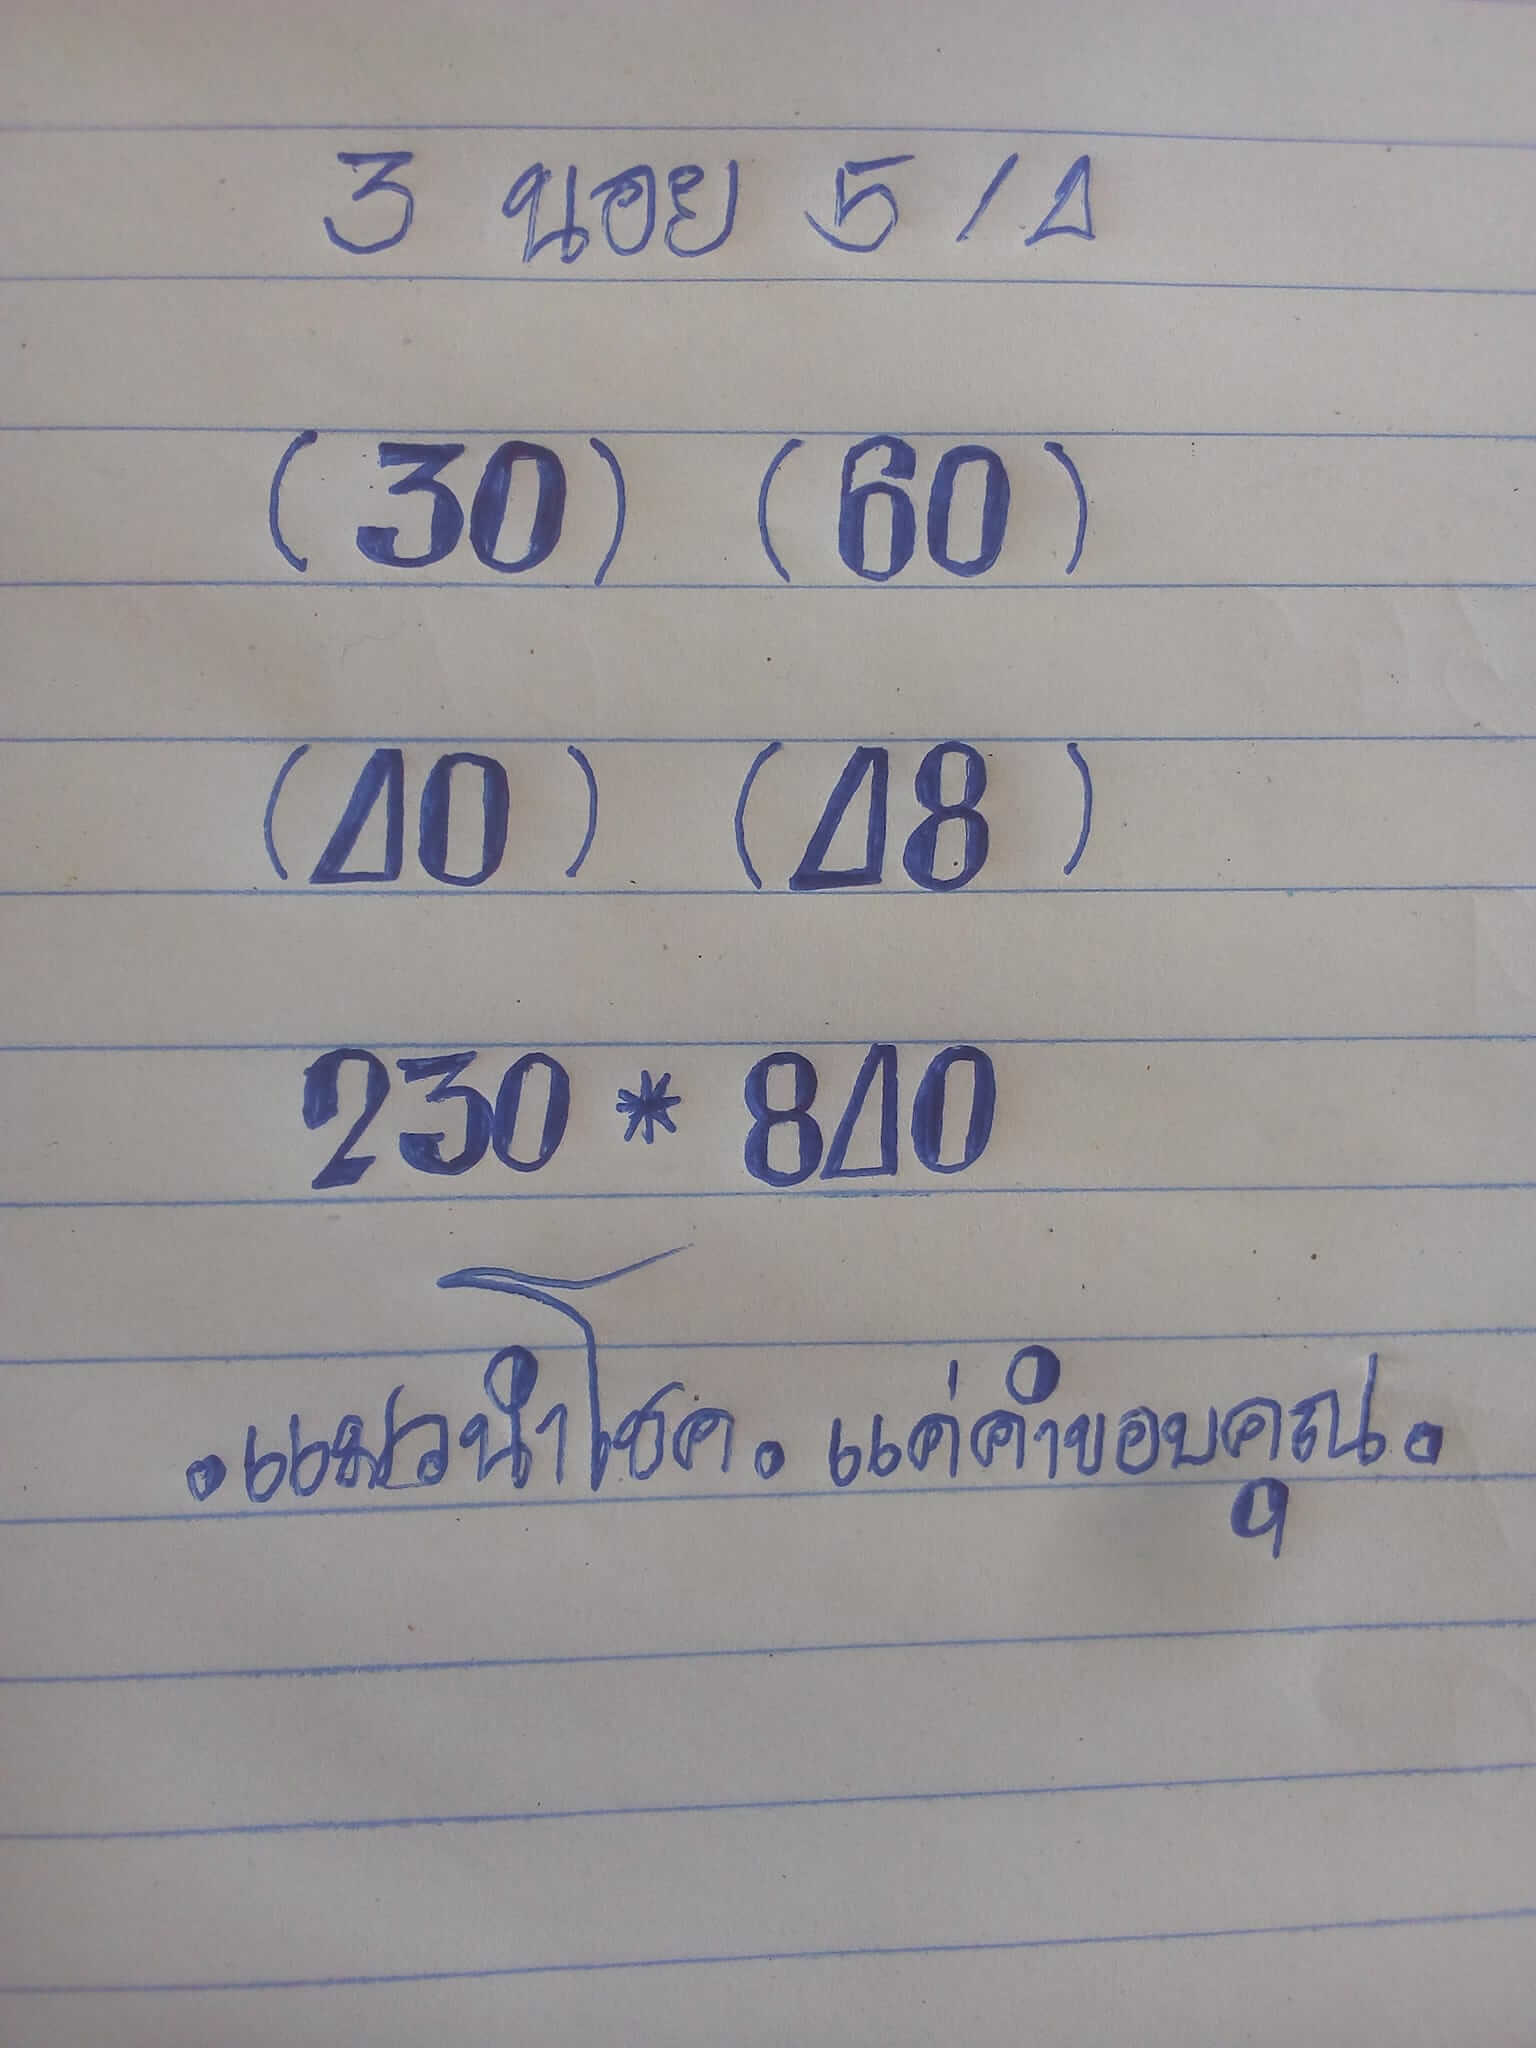 3 นอย 5 / 4
(30) (60)
(40) (48)
230 * 840
.แมวนำโชค. แค่คำขอบคุณ.